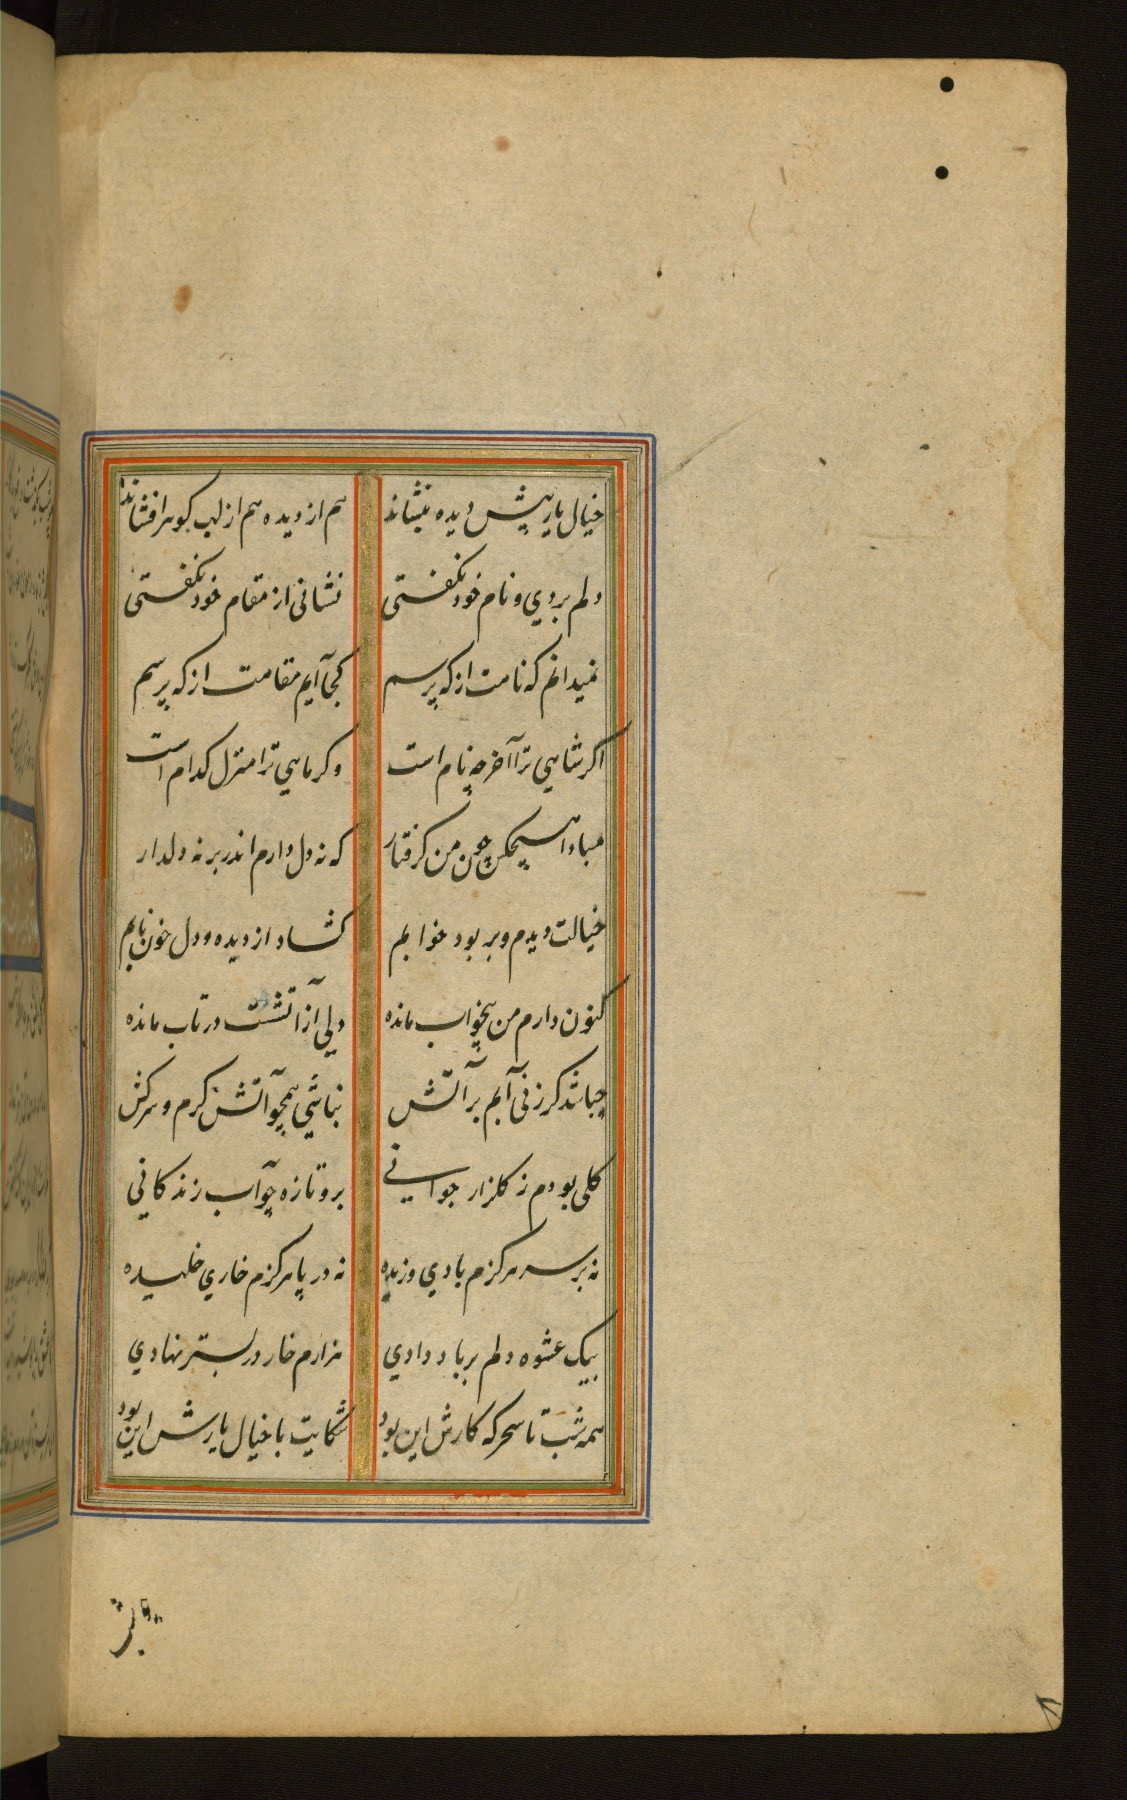 خیال یار پیش دیده بنشاند هم از دیده هم از لب کوهر افشاند
دلم بردي و نام خود نکفتی نشانی از مقام خود نکفتی
نمیدانم که نامت از که پرسم کجا آیم مقامت از که پرسم
اکر شاهي ترا آخر چه نام است وکر ماهي ترا منزل کدام است
مبادا هیچکس چون من کرفتار که نه دل دارم اندر بر نه دلدار
خیالت دیدم و بربود خوابم کشاد از دیده و دل خون نابم
کنون دارم من بیخواب مانده دلی از آتشت در تاب مانده
چباشد کر زنی آبم بر آتش نباشي همچو آتش کرم و سرکش
کلی بودم ز کلزار جوانے برو تازه چو آب زندکانی
نه بر سر هرکزم بادي وزیده نه در پا هرکزم خاري خلیده
بیک عشوه دلم بر باد دادي هزارم خار در بستر نهادي
همه شب تا سحرکه کارش این بود شکایت با خیال یارش این بود